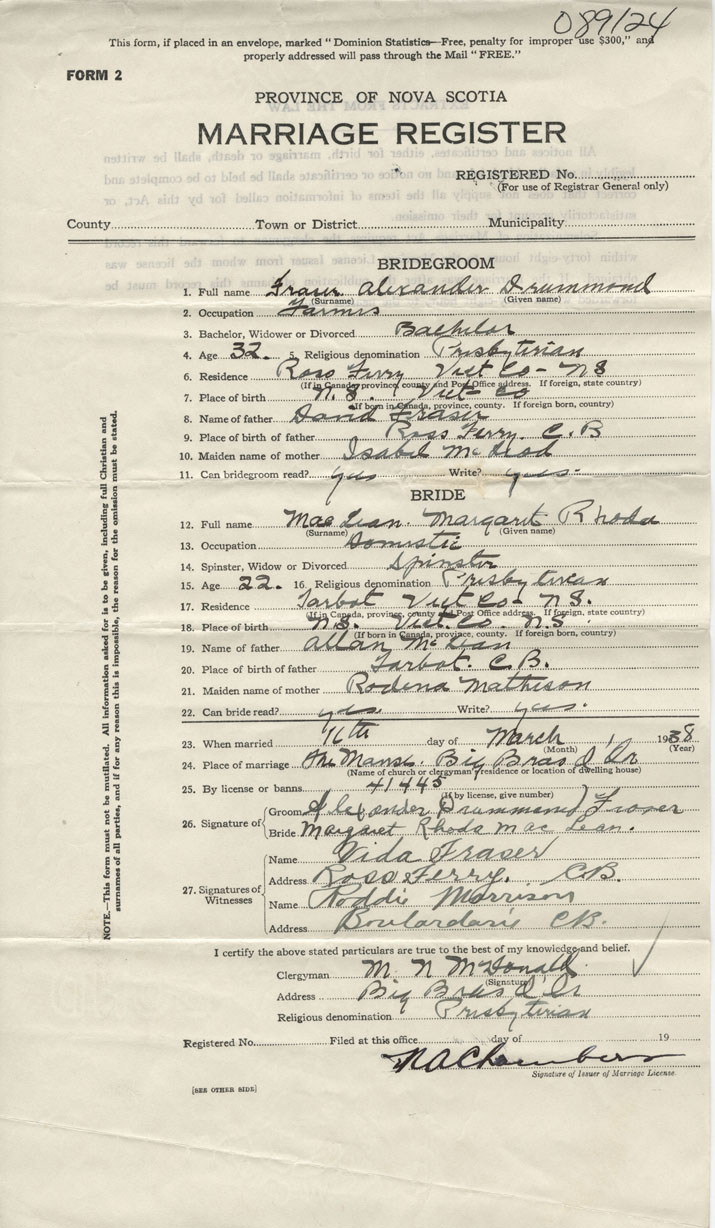 089124
This form, if placed in an envelope, marked "Dominion Statistics—Free, penalty for improper use $300," and
properly addressed will pass through the Mail "FREE."
FORM 2
PROVINCE OF NOVA SCOTIA
MARRIAGE REGISTER
REGISTERED No.
(For use of Registrar General only)
County Town or District Municipality
BRIDEGROOM
1. Full name Fraser Alexander Drummond
(Surname) (Given name)
2. Occupation Farmer
3. Bachelor, Widower or Divorced Bachelor
4. Age 32. 5. Religious denomination Presbyterian
6. Residence Ross Ferry Vict Co - NS
(If in Canada, province, county and Post Office address. If foreign, state country)
7. Place of birth N.S. Vict Co
(If born in Canada, province, county. If foreign born, country)
8. Name of father David Fraser
9. Place of birth of father Ross Ferry. C.B
10. Maiden name of mother Isabel McLeod
11. Can bridegroom read? yes Write? yes.
BRIDE
12. Full name MacLean. Margaret Rhoda
(Surname) (Given name)
13. Occupation Domestic
14. Spinster, Widow or Divorced Spinster
15. Age 22. 16. Religious denomination Presbyterian
17. Residence Tarbot Vict Co - N.S.
(If in Canada, province, county and Post Office address. If foreign, state country)
18. Place of birth N.S. Vict. Co. N.S.
(If born in Canada, province, county. If foreign born, country)
19. Name of father Allan McLean
20. Place of birth of father Tarbot. C.B.
21. Maiden name of mother Rodena Mathison
22. Can bride read? yes. Write? yes.
23. When married 16th day of March 1938
(Month) (Year)
24. Place of marriage The Manse. Big Bras d'Or
(Name of church or clergyman's residence or location of dwelling house)
25. By license or banns 41445
(If by license, give number)
26. Signature of
Groom Alexander Drummond Fraser
Bride Margaret Rhoda MacLean.
27. Signatures of Witnesses
Name Vida Fraser
Address Ross Ferry. C.B.
Name Roddie Morrison
Address Boulardarie CB.
I certify the above stated particulars are true to the best of my knowledge and belief.
Clergyman M. N McDonald
(Signature)
Address Big Bras d'Or
Religious denomination Presbyterian
Registered No. Filed at this office day of 19
Signature of Issuer of Marriage License.
[SEE OTHER SIDE]
NOTE.—This form must not be mutilated. All information asked for is to be given, including full Christian and
surnames of all parties, and if for any reason this is impossible, the reason for the omission must be stated.